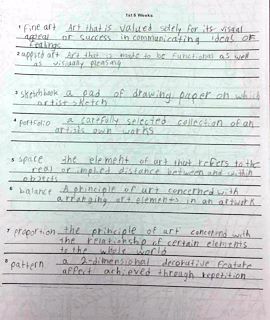 1st 6 Weeks
1 fine art Art that is valued solely for its visual
appeal or success in communicating ideas or
feelings
2 applied art Art that is made to be functional as well
as visually pleasing
3 sketchbook a pad of drawing paper on which
artist sketch
4 portfolio a carefully selected collection of an
artists own works
5 space the element of art that refers to the
real or implied distance between and within
objects
6 balance A principle of art concerned with
arranging art elements in an artwork
7 proportion the principle of art concerned with
the relationship of certain elements
to the whole world
8 pattern a 2-dimensional decorative feature
affect achieved through repetition